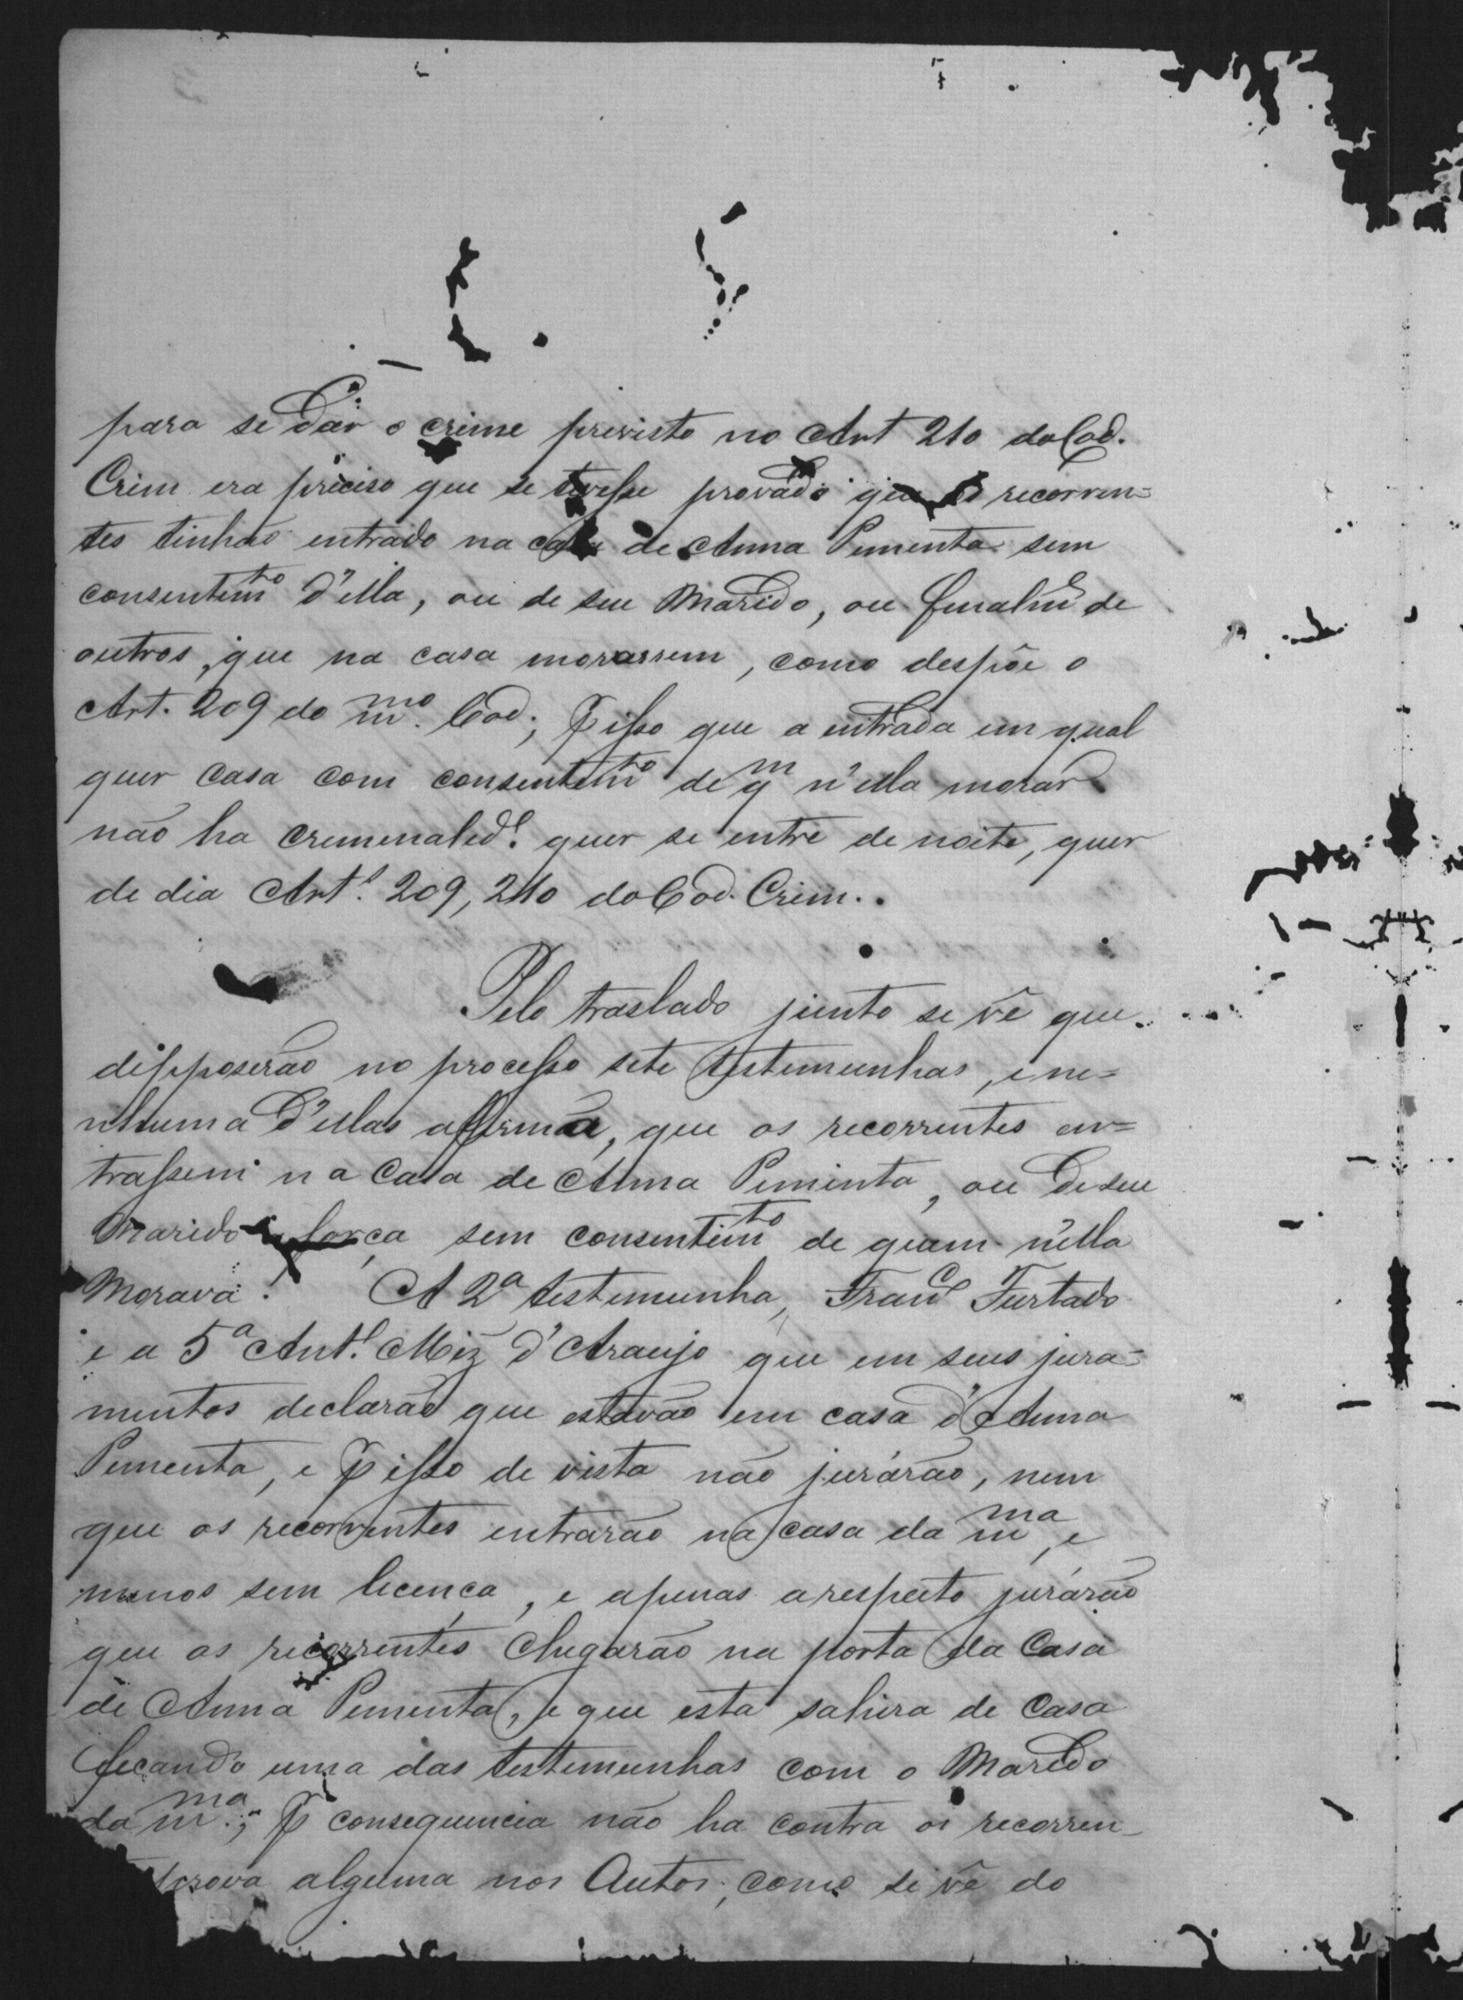 para se dar o crime previsto no Art 210 do Cod.
Crim era preciso que se tivesse provado que os recorren=
tes tinhão entrado na casa de Anna Pimenta sem
consentimto d'ella, ou de seu Marido, ou finalme de
outros, que na casa morassem, como despõe o
Art. 209 do mmo. Cod; P isso que a entrada em qual
quer casa com consentimto de qm n'ella morar
não ha cremenalide. quer se entre de noite, quer
de dia Arts. 209, 210 do Cod. Crim..
Pelo traslado junto se vê que
dipposerão no processo sete testemunhas, e ne=
nhuma d'ellas afirma, que os recorrentes en=
trassem na casa de Anna Pimenta, ou de seu
Marido a força sem consentimto de quem n'ella
Morava. A 2a testemunha, Franco Furtado
e a 5a Anto. Miz d'Araujo que em seus jura=
mentos declarão que estavão em casa d'Anna
Pimenta, e P isso de vista não jurárão, nem
que os recorrentes entrarão na casa da mma, e
menos sem licença, e apenas a respeito jurárão
que os recorrentes chegarão na porta da Casa
de Anna Pimenta, e que esta sahira de Casa
ficando uma das testemunhas com o Marido
da mma.; P consequencia não ha contra os recorren-
prova alguma nos Autos, como se vê do